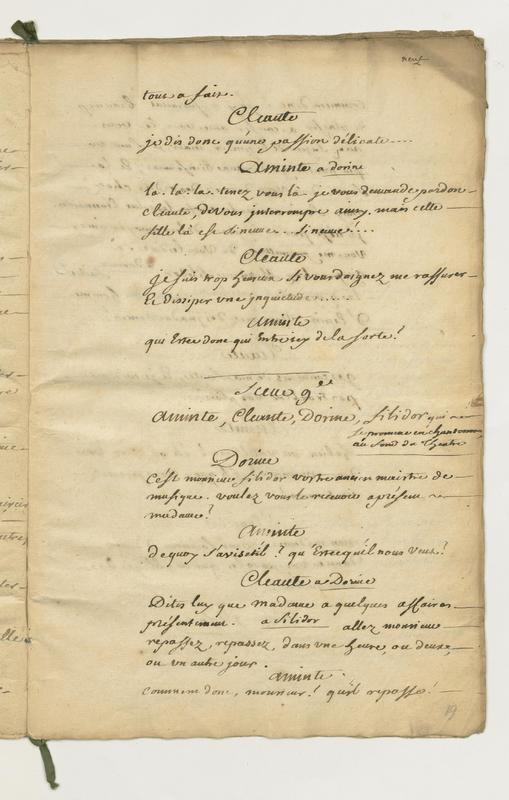 neuf
tout a fait.
Cleante
je dis donc qu'une passion délicate....
Aminte a dorine
la. la: la. tenez vous là. je vous demande pardon
cleante, de vous interrompre ainsy. mais cette
fille là est si neuve... si neuve!...
Cleante
je suis trop heureux si vous daignez me rassurer
Et dissiper une jnquietude.......
aminte
qui Est ce donc qui Entre icy de la sorte?
Scene 9e
Aminte, Cleante, Dorine, Silidor qui
se promene en chantonnant
au fond du theatre
Dorine
C'est monsieur Silidor vostre ancien maistre de
musique. voulez vous le recevoir apresent
madame?
Aminte
de quoy s'avise til? qu'Est ce quil nous veut?
Cleante a Dorine
Dites luy que madame a quelques affaires
présentement. a Silidor allez monsieur
repassez, repassez, dans une heure, ou deux,
ou un autre jour.
aminte.
comment donc, monsieur! quil repasse!
19